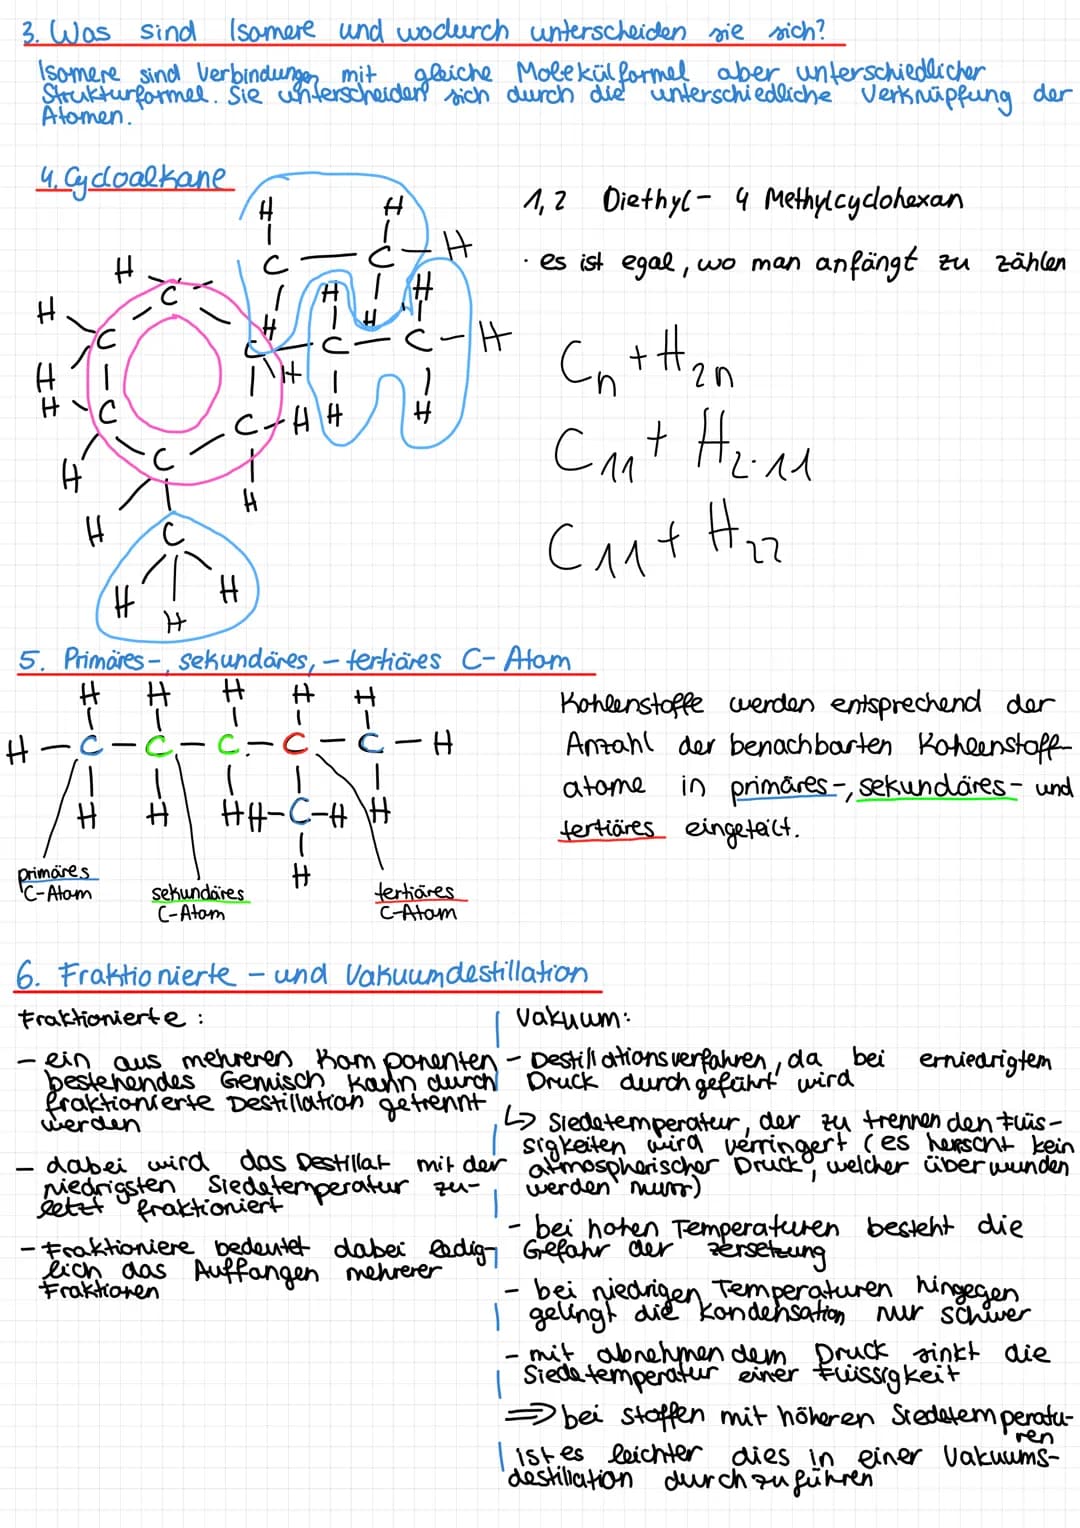 3. Was sind Isomere und wodurch unterscheiden sie sich?
Isomere sind Verbindungen mit gleiche Molekülformel aber unterschiedlicher
Strukturformel. Sie unterscheiden sich durch die unterschiedliche Verknüpfung der
Atomen.
4. Cycloalkane
1,2 Diethyl- 4 Methylcyclohexan
· es ist egal, wo man anfängt zu zählen
H H
C — C — H
H C
H C H H H
H C — C — H
H C H
H C C-H H H
H C H
H C
H H H
Cn + H2n
C11 + H2·11
C11 + H22
5. Primäres-, sekundäres, - tertiäres C- Atom
H H H H H
H — C — C — C — C — C — H
H H H H-C-H H
H
primäres
C-Atom
sekundäres
C-Atom
tertiäres
C-Atom
Kohlenstoffe werden entsprechend der
Anzahl der benachbarten Kohlenstoff-
atome in primäres-, sekundäres- und
tertiäres eingeteilt.
6. Fraktionierte - und Vakuumdestillation
Fraktionierte:
- ein aus mehreren Komponenten
bestehendes Gemisch kann durch
fraktionierte Destillation getrennt
werden
- dabei wird das Destillat mit der
niedrigsten Siedetemperatur zu-
letzt fraktioniert
- Fraktioniere bedeutet dabei ledig-
lich das Auffangen mehrerer
Fraktionen
Vakuum:
- Destillationsverfahren, da bei erniedrigtem
Druck durchgeführt wird
↳ Siedetemperatur, der zu trennenden Flüs-
sigkeiten wird verringert (es herscht kein
atmospherischer Druck, welcher überwunden
werden muss)
- bei hohen Temperaturen besteht die
Gefahr der Zersetzung
- bei niedrigen Temperaturen hingegen
gelingt die Kondensation nur schwer
- mit abnehmendem Druck sinkt die
Siedetemperatur einer Flüssigkeit
⇒ bei stoffen mit höheren Siedetemperatu-
ren
ist es leichter dies in einer Vakuums-
destillation durchzuführen